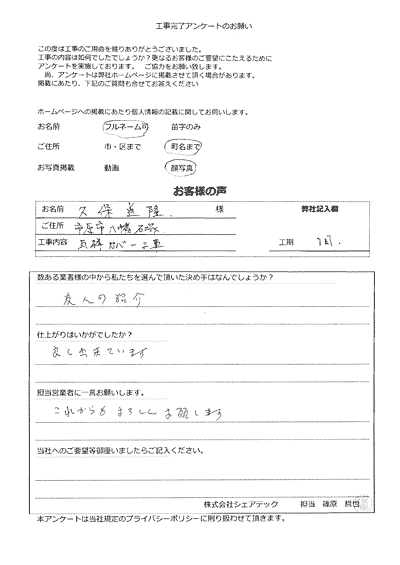 工事完了アンケートのお願い
この度は工事のご用命を賜りありがとうございました。
工事の内容は如何でしたでしょうか？更なるお客様のご要望にこたえるために
アンケートを実施しております。 ご協力をお願い致します。
尚、アンケートは弊社ホームページに掲載させて頂く場合があります。
掲載にあたり、下記のご質問も合せてお答えください
ホームページへの掲載にあたり個人情報の記載に関してお伺いします。
お名前 フルネーム可 苗字のみ
ご住所 市・区まで 町名まで
お写真掲載 動画 顔写真
お客様の声
お名前 久保 隆 様 弊社記入欄
ご住所 市原市八幡石塚
工事内容 瓦棒カバー工事 工期
数ある業者様の中から私たちを選んで頂いた決め手はなんでしょうか？
友人の紹介
仕上がりはいかがでしたか？
良し出来ています
担当営業者に一言お願いします。
これからもよろしくお願します
当社へのご要望等御座いましたらご記入ください。
株式会社シェアテック 担当 篠原 哲也
本アンケートは当社規定のプライバシーポリシーに則り扱わせて頂きます。